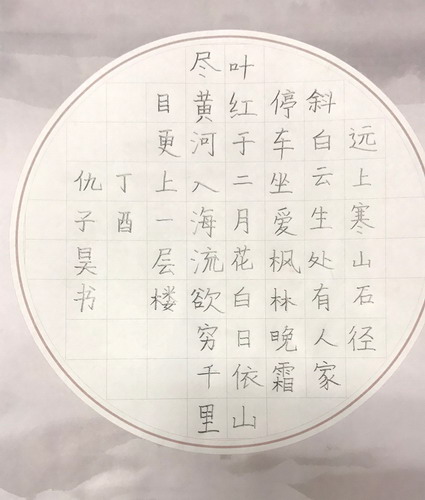 远上寒山石径
斜白云生处有人家
停车坐爱枫林晚霜
叶红于二月花白日依山
尽黄河入海流欲穷千里
目更上一层楼
丁酉
仇子昊书